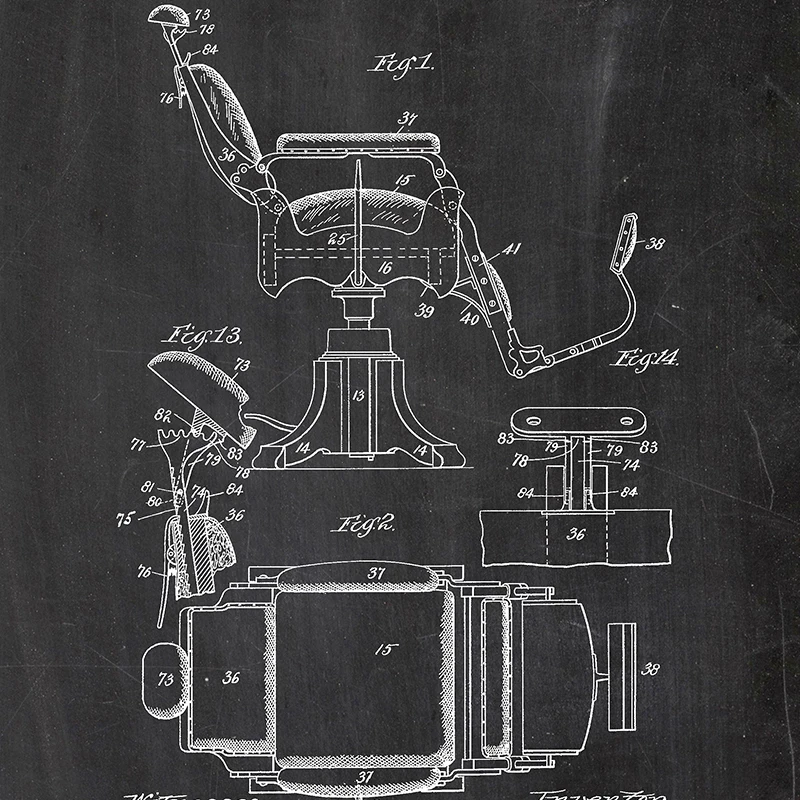 73
78
84
Fig.1.
76
37
36
15
25
41
38
16
39
40
Fig.13.
Fig.14.
73
13
82
77
83
79
78
14
14
83
79
83
78
79
74
81
80
74
84
84
84
75
36
36
Fig.2.
76
37
15
73
36
38
37
Inventor